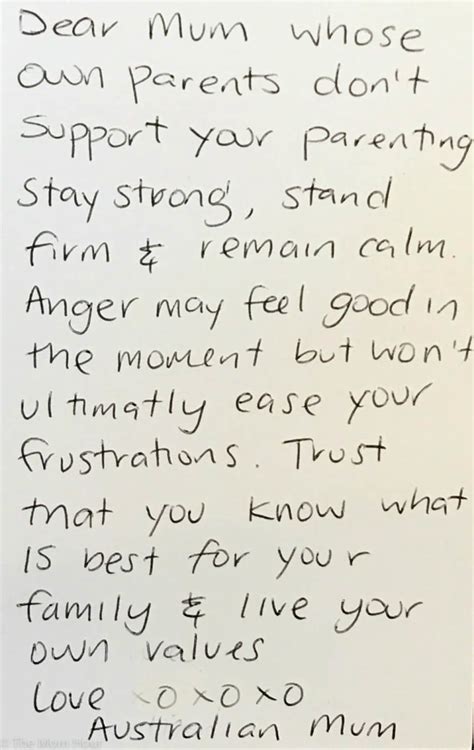 Dear Mum whose
own parents don't
support your parenting
Stay strong, stand
firm & remain calm.
Anger may feel good in
the moment but won't
ultimatly ease your
frustrations. Trust
that you know what
is best for your
family & live your
own values
Love xoxoxo
Australian Mum
© The Mom Hour